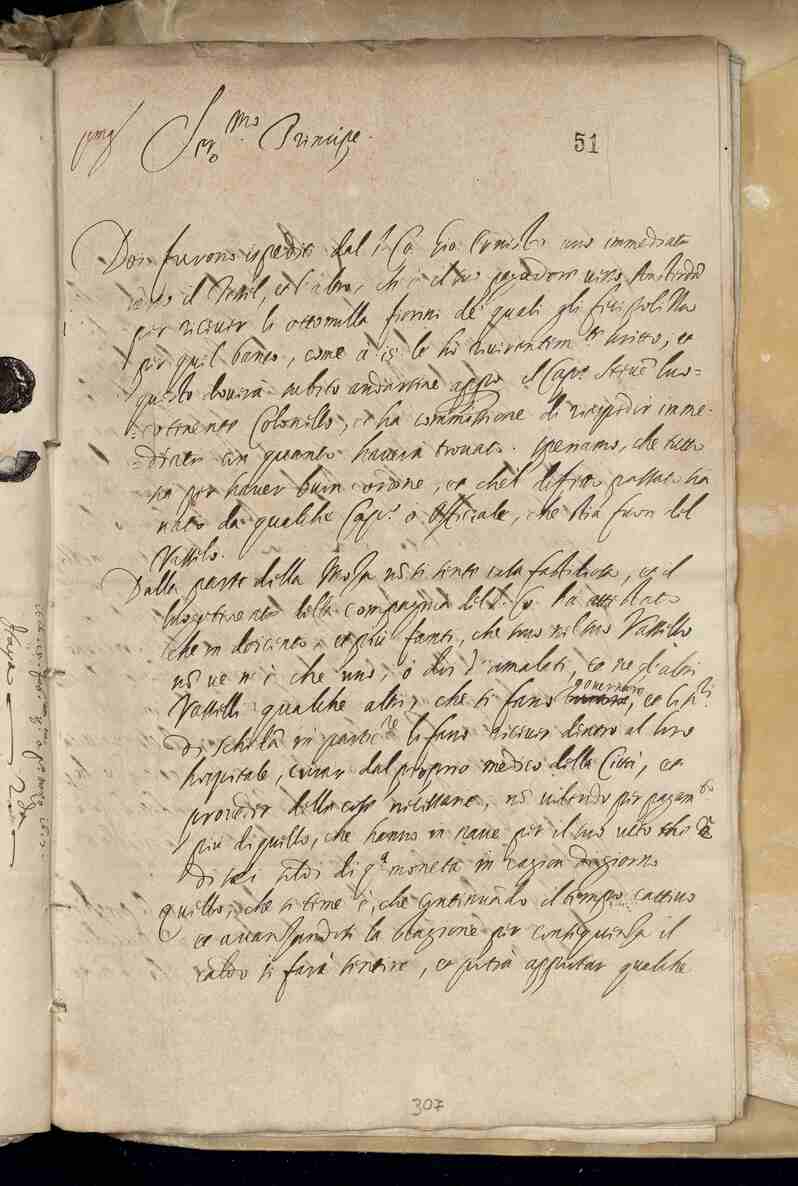 Ser.mo Principe.
51
Doi furono espediti dal S.r Co. Gio. Ernesto uno immediate
verso il Texel, et l'altro, che è il suo pagadore verso Amsterdam
per ricever li ottomilla fiorini de quali gli feci poliza
per quel banco, come a 15 le ho riverentem.te scritto, et
questo doverà subito andarsene appo il Cap.o luo-
cotenente Colonello, et ha commissione di rispedir imme-
diate con quanto haverà trovato. speriamo, che tutto
sia per haver buon ordine, et che'l disordine passato sia
nato da qualche Cap.o o Officiale, che stia fuori del
Vassello.
Dalla parte della Mosa nō si sente cosa fastidiosa, et il
luocotenente della compagnia del S.r Co. ha attestato
che in doicento, et più fanti, che sono nel suo Vassello
nō ve n'è che uno, o doi d'amalati, et ne gl'altri
Vasselli qualche altri che si fano governare, et li
di in partic.re li fano ricever dietro al loro
hospitale, curar dal proprio medico della Città, et
proveder delle cose necessarie, nō volendo per pagam.to
più di quello, che hanno in nave per il suo vitto che è
di sei soldi di q.a moneta in ragion di giorno
Quello, che si teme è, che continuando il tempo cattivo
et avanzandosi la stagione per conseguenza il
caldo si farà sentire, et potrà apportar qualche
307